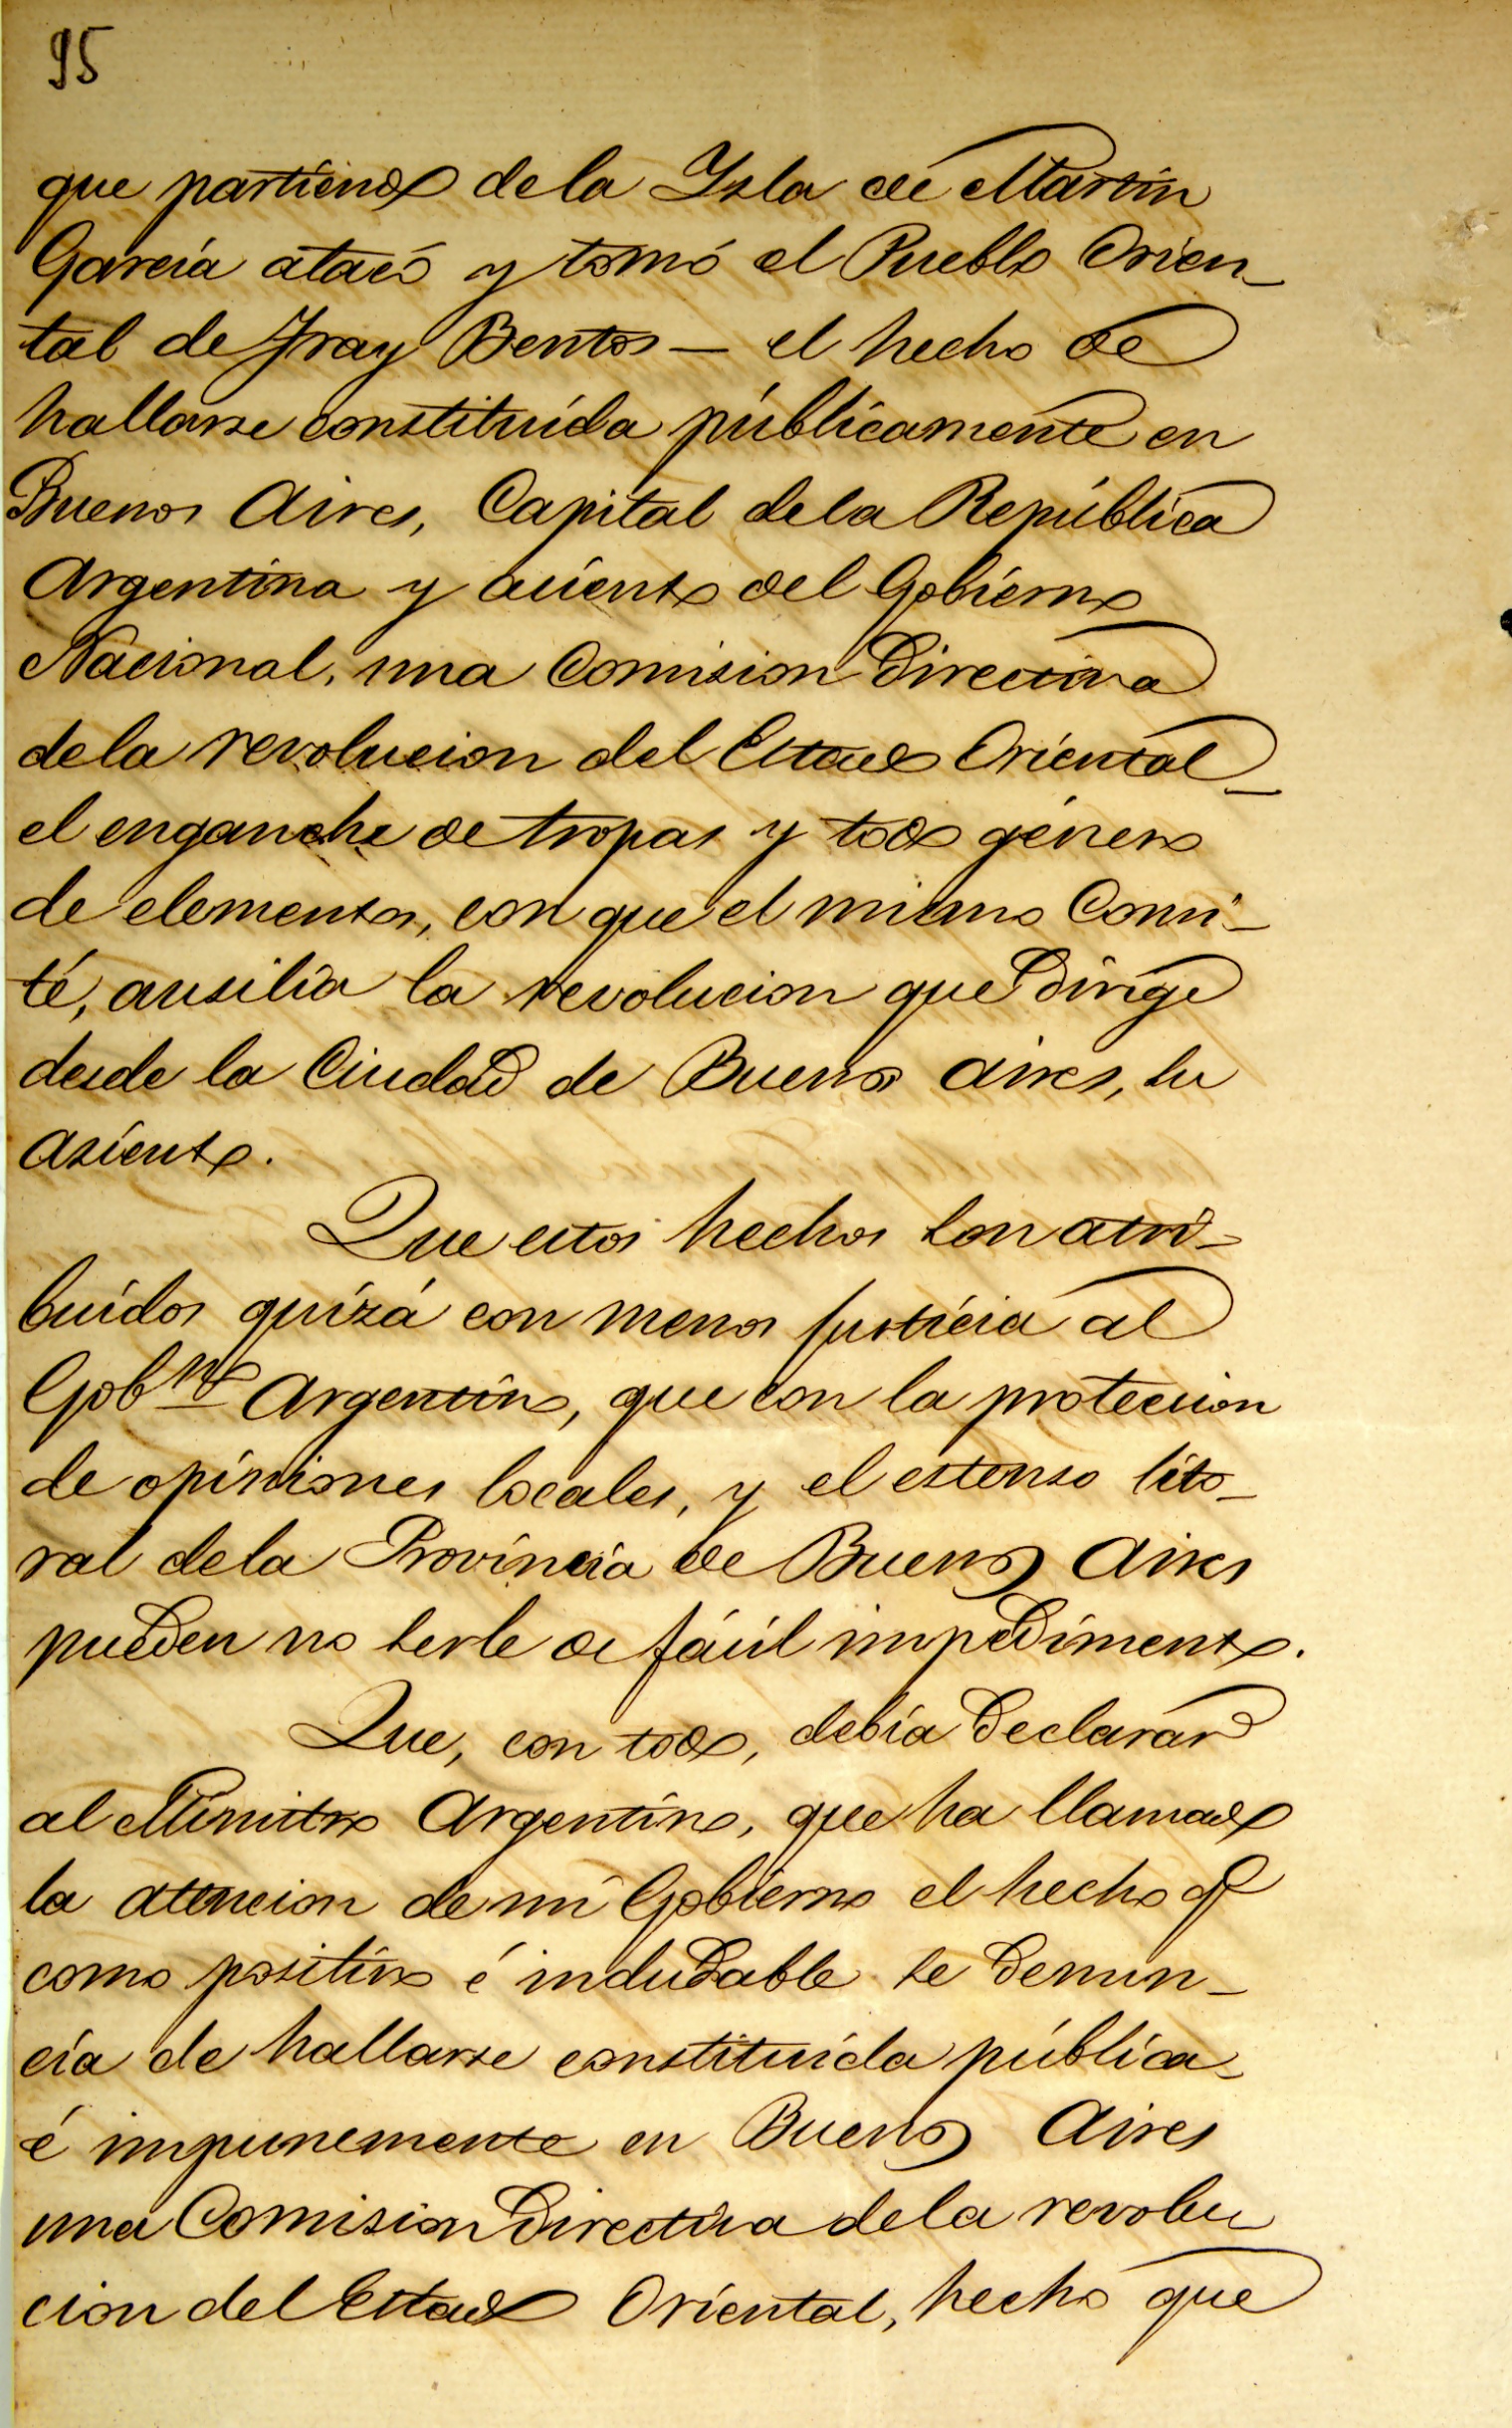 95
que partiendo de la Ysla de Martin
García atacó y tomó el Pueblo Orien-
tal de Fray Bentos — el hecho de
hallarse constituída públicamente en
Buenos Aires, Capital de la República
Argentina y asiento del Gobierno
Nacional, una Comision Directiva
de la revolucion del Estado Oriental_
el enganche de tropas y todo género
de elementos, con que el mismo Comi-
té, ausilia la revolucion que dirige
desde la Ciudad de Buenos Aires, su
asiento.
Que estos hechos son atri-
buidos quizá con menos justicia al
Gobno Argentino, que con la proteccion
de opiniones locales, y el estenso lito-
ral de la Provincia de Buenos Aires
pueden no serle de fácil impedimento.
Que, con todo, debía declarar
al Ministro Argentino, que ha llamado
la atencion de mi Gobierno el hecho q
como positivo é indudable se denun-
cia de hallarse constituída pública-
é impunemente en Buenos Aires
una Comision Directiva de la revolu
cion del Estado Oriental, hecho que